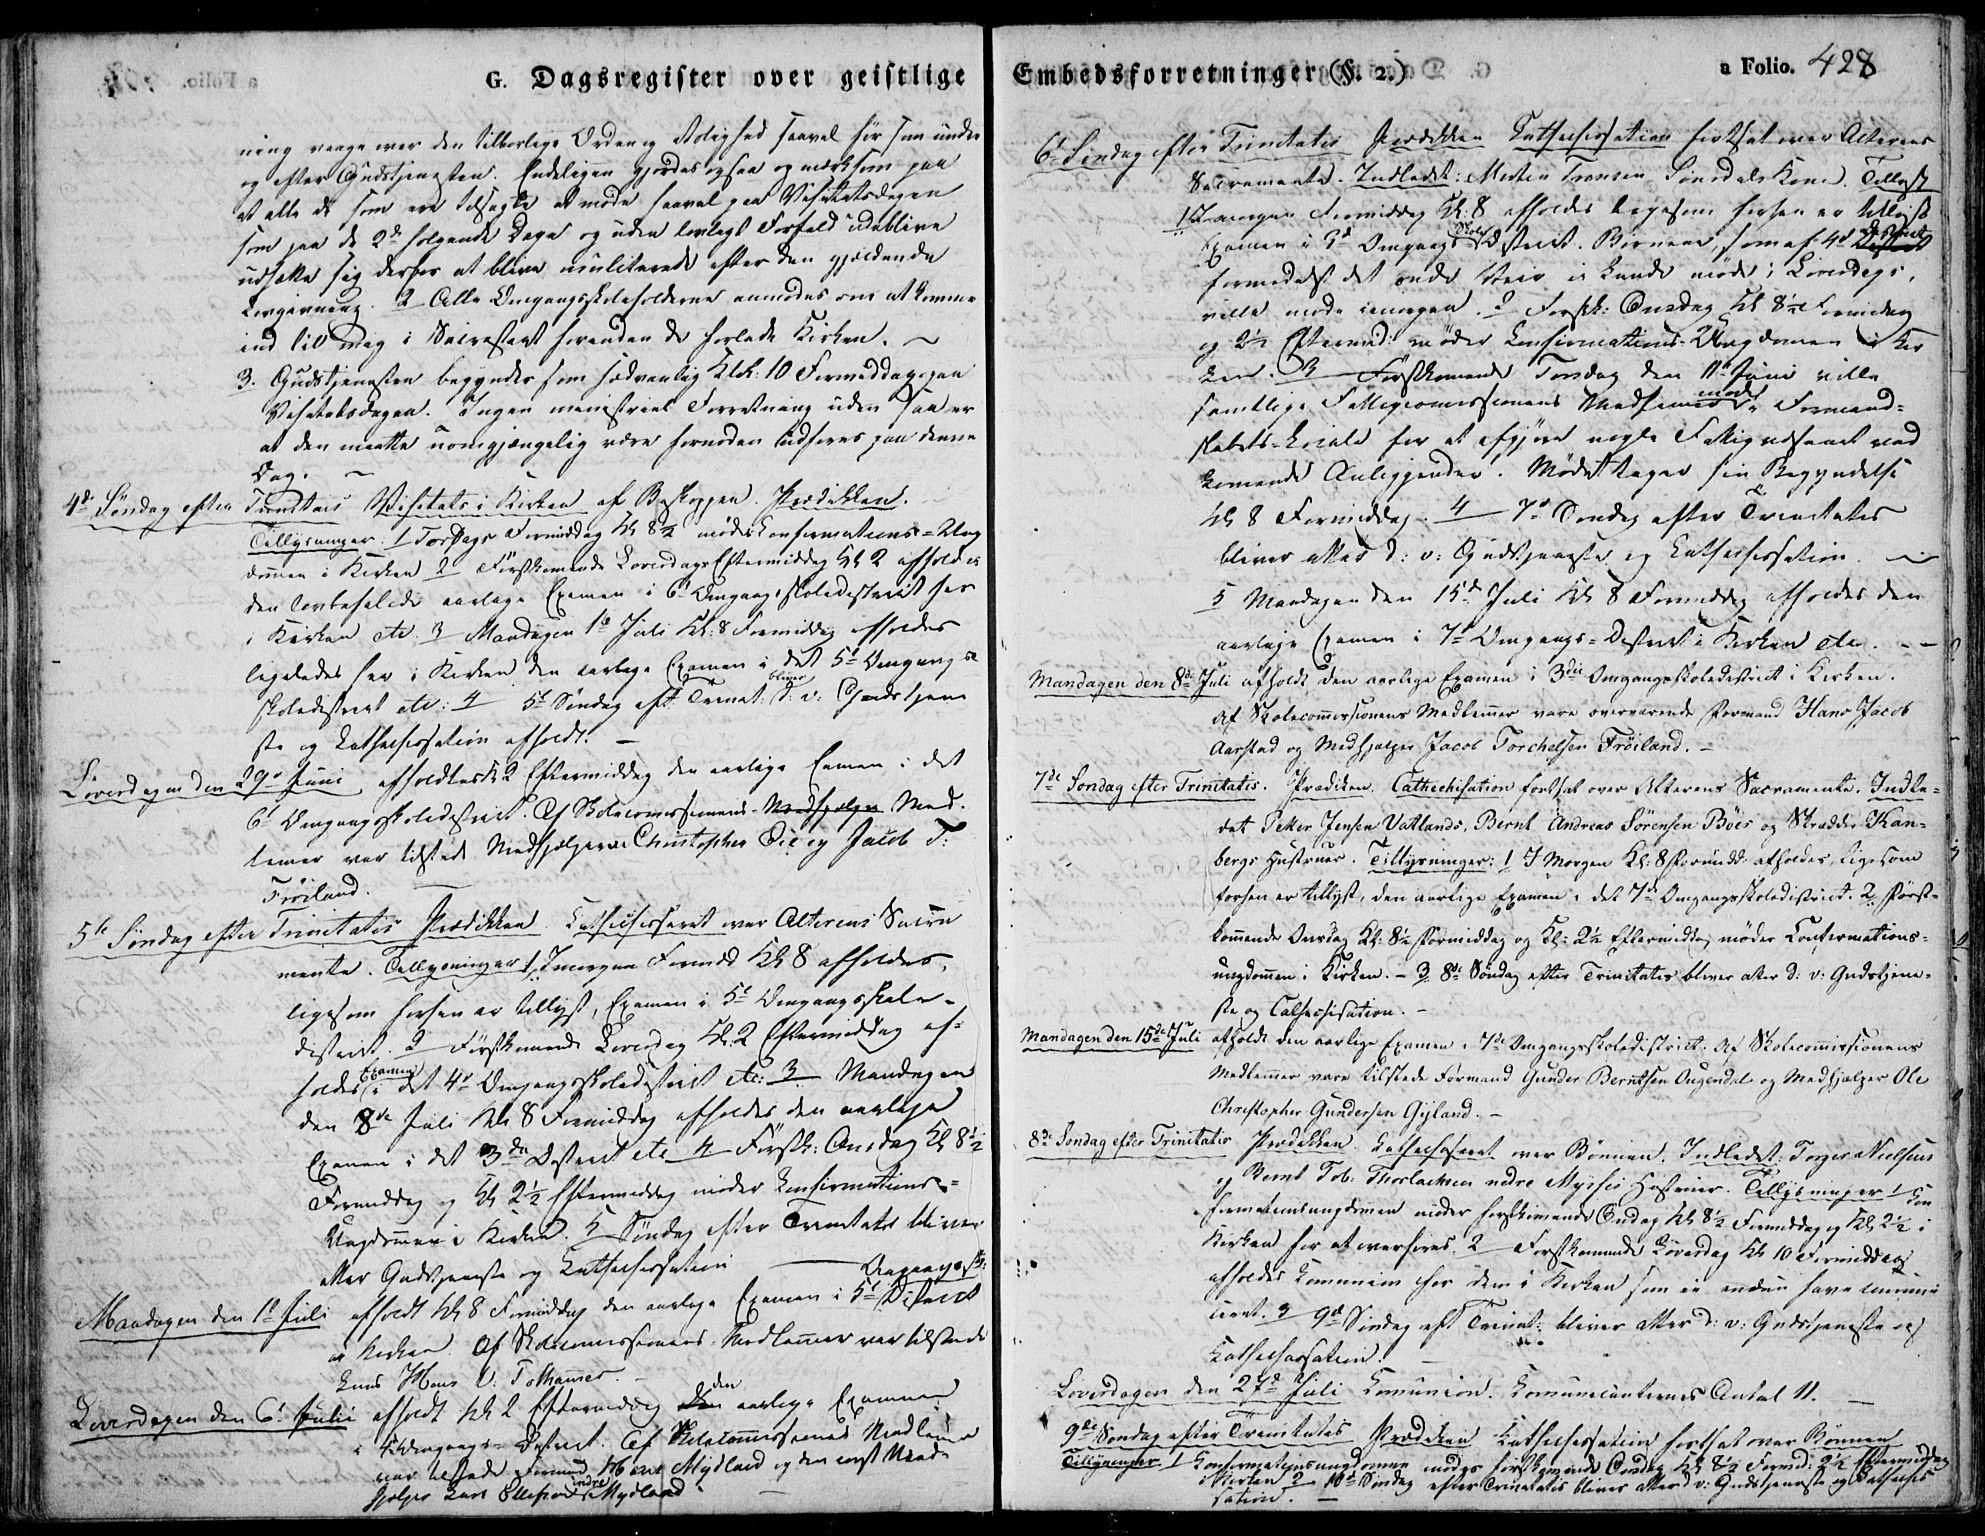 G. Dagsregister over geistlige
ning vaage over den tilbørlige Orden og Rolighed saavel før som under
og efter Gudstjenesten. Endeligen gjordes ogsaa opmærksom paa
at alle de som ere tilsagte at møde saavel paa Visitatsdagen
som paa de 2de følgende Dage og uden lovligt Forfald udeblive
udsætte sig derfor at blive mulkterede efter den gjældende
Lovgivning. 2 Alle Omgangsskoleholderne anmodes om at komme
ind til mig i Sacristiet forenden de forlade Kirken.
3. Gudstjenesten begynder som sædvanlig Klk: 10 Formiddag paa
Visitatsdagen. Ingen ministriel Forretning uden saa er
at den maatte uomgjængelig være fornøden udføres paa denne
Dag.
4de Søndag efter Trinitatis Visitats i Kirken af Biskoppen. Prædikken.
Tillysninger: 1 Torsdags Formiddag Kl 8½ møde Confirmations-Ung
dommen i Kirken 2 Førstkomende Løverdags Eftermiddag Kl 2 afholdes
den lovbefalede aarlige Examen i 6te Omgangsskoledistrict her
i Kirken etc. 3 Mandagen 1te Juli Kl: 8 Formiddag afholdes
ligeledes her i Kirken den aarlige Examen i det 5te Omgangs
skoledistrict etc: 4 5te Søndag eft Trinit: bliver d: v: Gudstjene
ste og Cathechisation afholdt.
Løverdagen den 29de Juni afholdtes Kl 2 Eftermiddag den aarlige Examen i det
6te Omgangsskoledistrict. Af Skolecommissionens Medhjælper Med-
lemer var tilstede Medhjælperne Christopher Eie og Jacob T:
Frøiland.
5te Søndag efter Trinitatis Prædikken. Cathechiseret over Alterens Sacra
mente. Tillysninger 1, Imorgen Formidd Kl 8 afholdes,
ligesom forhen er tillyst, Examen i 5te Omgangsskole-
district. 2 Førstkomende Løverdag Kl. 2 Eftermiddag af-
holdes Examen i det 4de Omgangsskoledistrict etc: 3 Mandagen
den 8de Juli Kl 8 Formiddag afholdes den aarlige
Examen i det 3die District etc 4 Førstk: Onsdag Kl 8½
Formiddag og Kl 2½ Eftermiddag møder Confirmations-
Ungdommen i Kirken. 5 Søndag efter Trinitatis bliver
atter Gudstjeneste og Cathechisation
Mandagen den 1te Juli afholdt Kl 8 Formiddag den aarlige Examen i 5te Omgangssk: District
i Kirken. Af Skolecommissionens Medlemer var tilstede
kuns Hans
Løverdagen den 6te Julii afholdt Kl 2 Eftermiddag den den aarlige Examen
i 4de Omgangs-District. Af Skolecommissionens Medlemer
var tilstede Formand Hans Mydland og den
hjelper Lars Ellefsen indre Mydland.
Embedsforretninger (§. 2.)
a Folio. 428
6te Søndag efter Trinitatis Prædikken Cathechisation fortsat over Alterens
Sacramente. Indledet: Morten Tronsen Lunsdals Kone. Tillyst
1 Imorgen Formiddag Kl: 8 afholdes ligesom forhen er tillyst
Examen i 3die Omgangs Skoledistrict. Børnene, som af 4de District
formedelst det onde Veir ei kunde møde i Løverdags,
ville møde imorgen. 2 Førstk: Onsdag Kl 8½ Formidag
og 2½ Eftermid: møder Confirmations-Ungdommen i Kir
ken. 3 Førstkomende Torsdag den 11te Juni ville
samtlige Fattigcomissionens Medlemer møde i Formand-
skabets-Locale for at afgjøre nogle Fattigvæsenet ved
komende Anliggender. Mødet tager sin Begyndelse
Kl 8 Formiddag. 4 7de Søndag efter Trinitatis
bliver atter d: v: Gudstjeneste og Cathechisation.
5 Mandagen den 15de Juli Kl 8 Formiddag afholdes den
aarlige Examen i 7de Omgangs-District i Kirken etc.
Mandagen den 8de Juli afholdt den aarlige Examen i 3die Omgangsskoledistrict i Kirken.
Af Skolecommissionens Medlemmer vare overværende Formand Hans Jacob
Aarstad og Medhjælper Jacob Torchelsen Frøiland.
7de Søndag efter Trinitatis. Prædiken. Cathechisation fortsat over Alterens Sacramente. Indle-
det Petter Jensen Vatlands, Bernt Andreas Sørensen Böes og Skrædder Kan-
bergs Hustruer. Tillysninger: 1 I Morgen Kl: 8 Formidd: afholdes, ligesom
forhen er tillyst, den aarlige Examen i det 7de Omgangsskoledistrict. 2. Först-
kommende Onsdag Kl: 8½ Formiddag og Kl: 2½ Eftermiddag møder Confirmations-
ungdommen i Kirken. - 3 8de Søndag efter Trinitatis bliver atter d: v: Gudstjene-
ste og Cathechisation.
Mandagen den 15de Juli afholdt den aarlige Examen i 7de Omgangsskoledistrict. Af Skolecommissionens
Medlemmer vare tilstede Formand Gunder Berntsen Ougendal og Medhjælper Ole
Christopher Gundersen Gyland.
8de Søndag efter Trinitatis Prædikken. Cathechiseret over Bønnen. Indledet: Torger Nielsens
og Bernt Tob: Thorlachsen nedre Myssis Hustruer. Tillysninger 1 Con
firmationsungdommen møder førstkomende Onsdag Kl 8½ Formiddag og Kl 2½ i
Kirken for at overhøres. 2 Førstkomende Løverdag Kl 10 Formiddag
afholdes Communion for dem i Kirken som ei endnu have commu
niceret. 3 9de Søndag eft Trinit: bliver atter d: v: Gudstjeneste og
Cathechisation.
Løverdagen den 27de Juli Comunion. Comunicanternes Antal 11.
9de Søndag efter Trinitatis Prædiken Cathechisation fortsat over Bønnen
Tillysninger 1 Confirmationsungdommen møder førstkomende Onsdag Kl 8½ Formd: 2½ Eftermiddag
i Kirken 2 10de Søndag efter Trinitatis bliver atter d: v: Gudstjeneste og Cathechi-
sation.